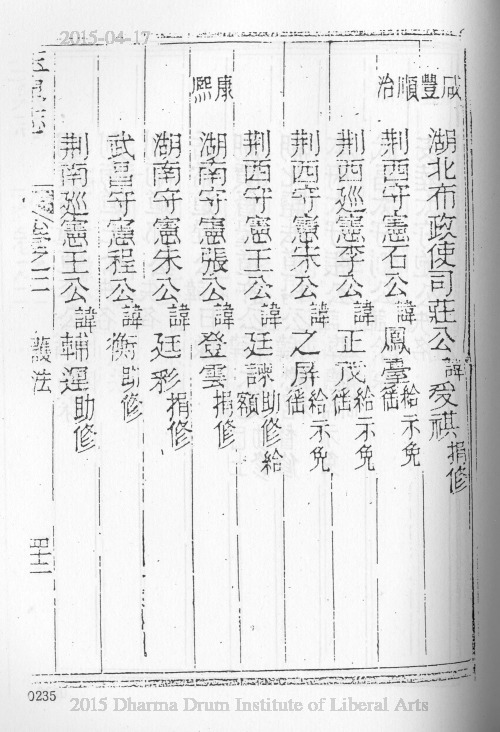 2015-04-17
咸豐
湖北布政使司莊公諱受祺捐修
順治
荆西守憲石公諱鳳臺給示免徭
荆西廵憲李公諱正茂給示免徭
荆西守憲宋公諱之屏給示免徭
荆西守憲王公諱廷諫助修給額
康熙
湖南守憲張公諱登雲捐修
湖南守憲朱公諱廷彩捐修
武昌守憲程公諱衡助修
荆南廵憲王公諱輔運助修
護法
0235
2015 Dharma Drum Institute of Liberal Arts